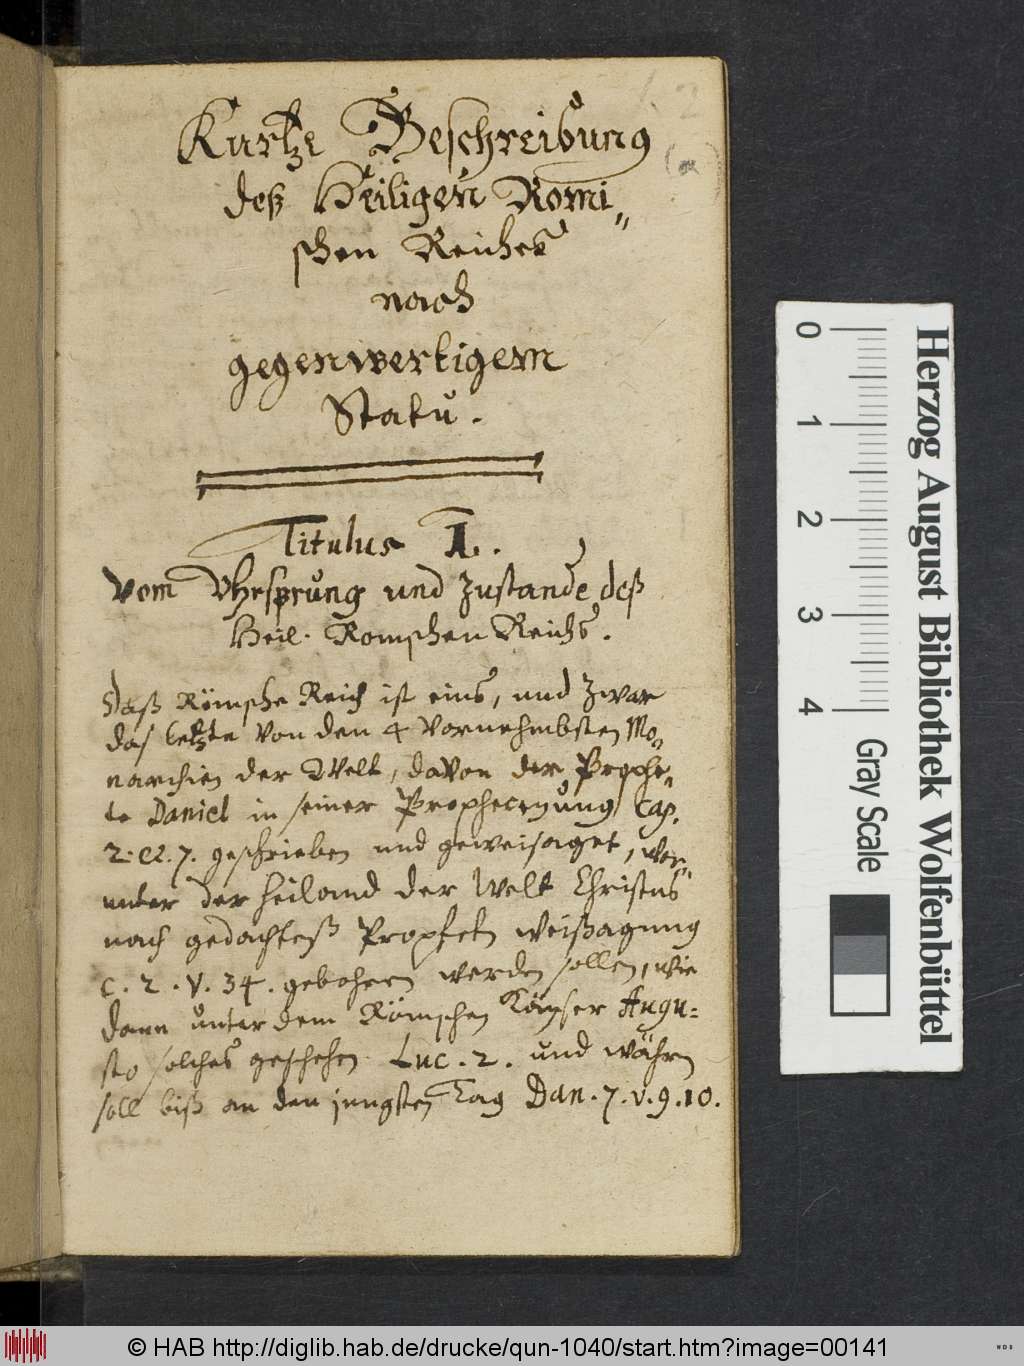 Kurtze Beschreibung
deß Heiligen Römi„
schen Reiches
nach
gegenwertigem
Statu.
Titulus I.
Vom Vhrsprung und Zustande deß
Heil. Romschen Reichs.
Daß Römsche Reich ist eins, und zwar
das letzte von den 4 Vornehmbsten Mo„
narchien der Welt, davon der Prophe„
te Daniel in seiner Propheceyung Cap.
2. et. 7. geschrieben und geweisaget, wor„
unter der Heiland der Welt Christus
nach gedachteß Propfeten Weißagung
C. 2. V. 34. gebohren werden sollen, wie
dann unter dem Römschen Kayser Augu=
sto solches geschehen Luc. 2. und währen
soll biß an den jungsten Tag Dan. 7. v. 9. 10.
Herzog August Bibliothek Wolfenbüttel
0 1 2 3 4
Gray Scale
© HAB http://diglib.hab.de/drucke/qun-1040/start.htm?image=00141